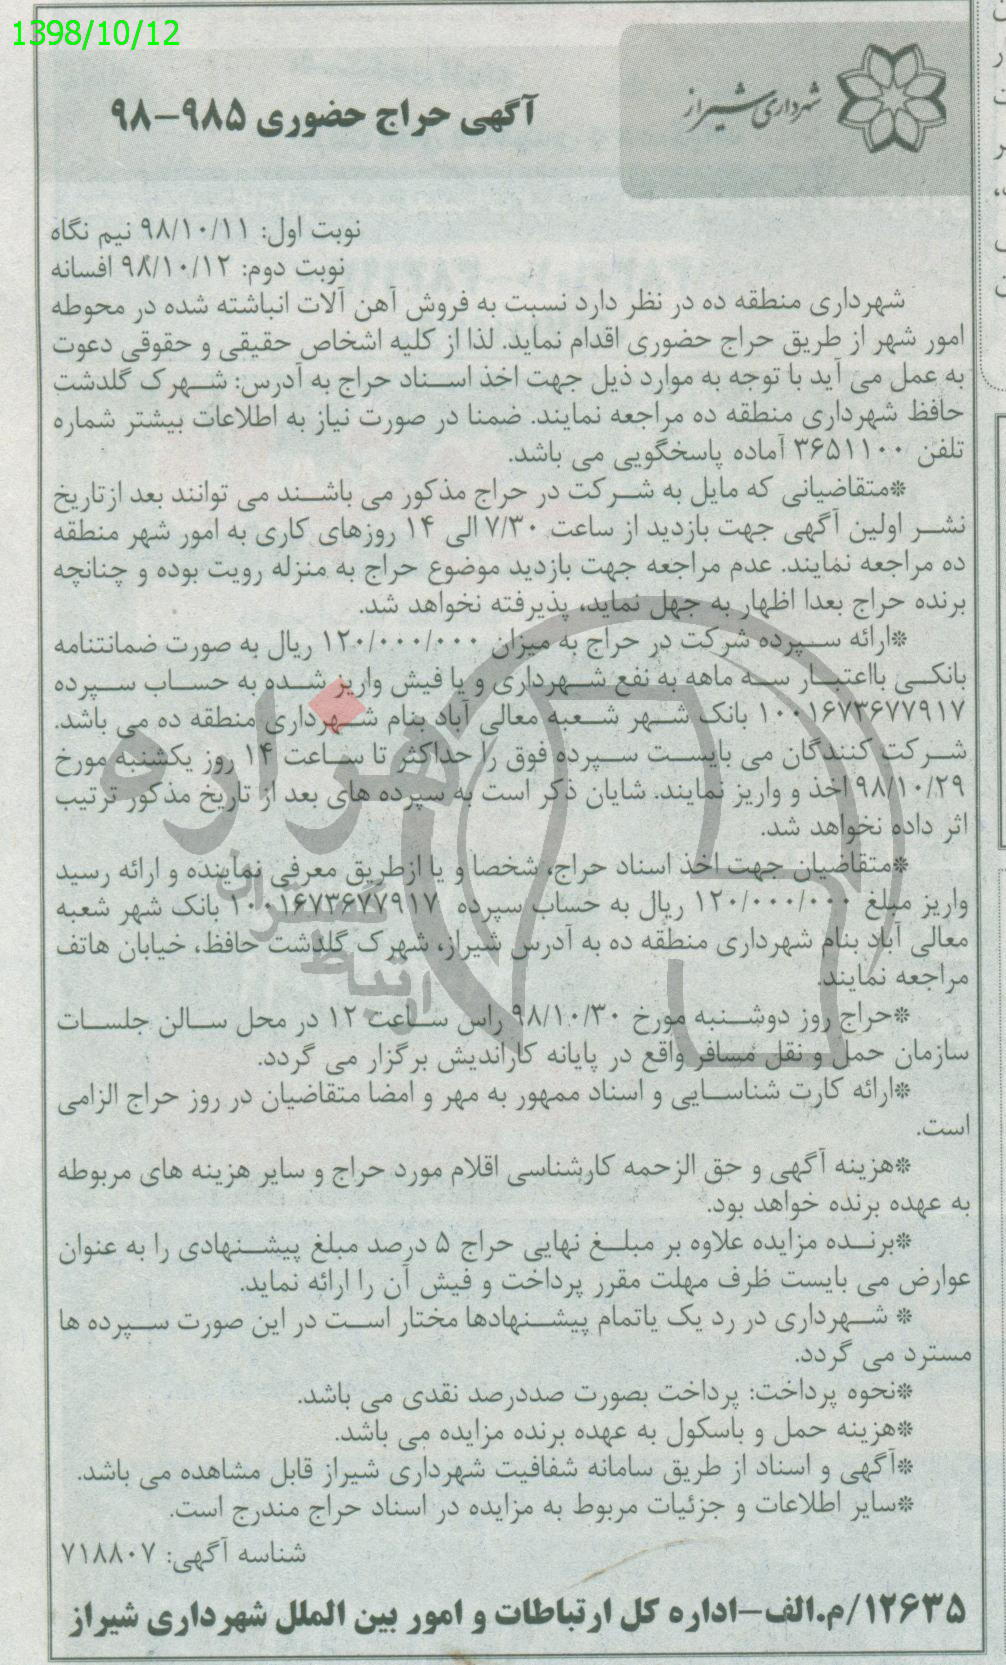 1398/10/12
شهرداری شیراز
آگهی حراج حضوری ۹۸۵-۹۸
نوبت اول: ۹۸/۱۰/۱۱ نیم نگاه
نوبت دوم: ۹۸/۱۰/۱۲ افسانه
شهرداری منطقه ده در نظر دارد نسبت به فروش آهن آلات انباشته شده در محوطه
امور شهر از طریق حراج حضوری اقدام نماید. لذا از کلیه اشخاص حقیقی و حقوقی دعوت
به عمل می آید با توجه به موارد ذیل جهت اخذ اسناد حراج به آدرس: شهرک گلدشت
حافظ شهرداری منطقه ده مراجعه نمایند. ضمنا در صورت نیاز به اطلاعات بیشتر شماره
تلفن ۳۶۵۱۱۰۰ آماده پاسخگویی می باشد.
*متقاضیانی که مایل به شرکت در حراج مذکور می باشند می توانند بعد ازتاریخ
نشر اولین آگهی جهت بازدید از ساعت ۷/۳۰ الی ۱۴ روزهای کاری به امور شهر منطقه
ده مراجعه نمایند. عدم مراجعه جهت بازدید موضوع حراج به منزله رویت بوده و چنانچه
برنده حراج بعدا اظهار به جهل نماید، پذیرفته نخواهد شد.
*ارائه سپرده شرکت در حراج به میزان ۱۲۰/۰۰۰/۰۰۰ ریال به صورت ضمانتنامه
بانکی بااعتبار سه ماهه به نفع شهرداری و یا فیش واریز شده به حساب سپرده
۱۰۰۱۶۷۳۶۷۷۹۱۷ بانک شهر شعبه معالی آباد بنام شهرداری منطقه ده می باشد.
شرکت کنندگان می بایست سپرده فوق را حداکثر تا ساعت ۱۴ روز یکشنبه مورخ
۹۸/۱۰/۲۹ اخذ و واریز نمایند. شایان ذکر است به سپرده های بعد از تاریخ مذکور ترتیب
اثر داده نخواهد شد.
*متقاضیان جهت اخذ اسناد حراج، شخصا و یا ازطریق معرفی نماینده و ارائه رسید
واریز مبلغ ۱۲۰/۰۰۰/۰۰۰ ریال به حساب سپرده ۱۰۰۱۶۷۳۶۷۷۹۱۷ بانک شهر شعبه
معالی آباد بنام شهرداری منطقه ده به آدرس شیراز، شهرک گلدشت حافظ، خیابان هاتف
مراجعه نمایند.
*حراج روز دوشنبه مورخ ۹۸/۱۰/۳۰ راس ساعت ۱۲ در محل سالن جلسات
سازمان حمل و نقل مسافر واقع در پایانه کاراندیش برگزار می گردد.
*ارائه کارت شناسایی و اسناد ممهور به مهر و امضا متقاضیان در روز حراج الزامی
است.
*هزینه آگهی و حق الزحمه کارشناسی اقلام مورد حراج و سایر هزینه های مربوطه
به عهده برنده خواهد بود.
*برنده مزایده علاوه بر مبلغ نهایی حراج ۵ درصد مبلغ پیشنهادی را به عنوان
عوارض می بایست ظرف مهلت مقرر پرداخت و فیش آن را ارائه نماید.
* شهرداری در رد یک یاتمام پیشنهادها مختار است در این صورت سپرده ها
مسترد می گردد.
*نحوه پرداخت: پرداخت بصورت صددرصد نقدی می باشد.
*هزینه حمل و باسکول به عهده برنده مزایده می باشد.
*آگهی و اسناد از طریق سامانه شفافیت شهرداری شیراز قابل مشاهده می باشد.
*سایر اطلاعات و جزئیات مربوط به مزایده در اسناد حراج مندرج است.
شناسه آگهی: ۷۱۸۸۰۷
۱۲۶۳۵/م.الف-اداره کل ارتباطات و امور بین الملل شهرداری شیراز